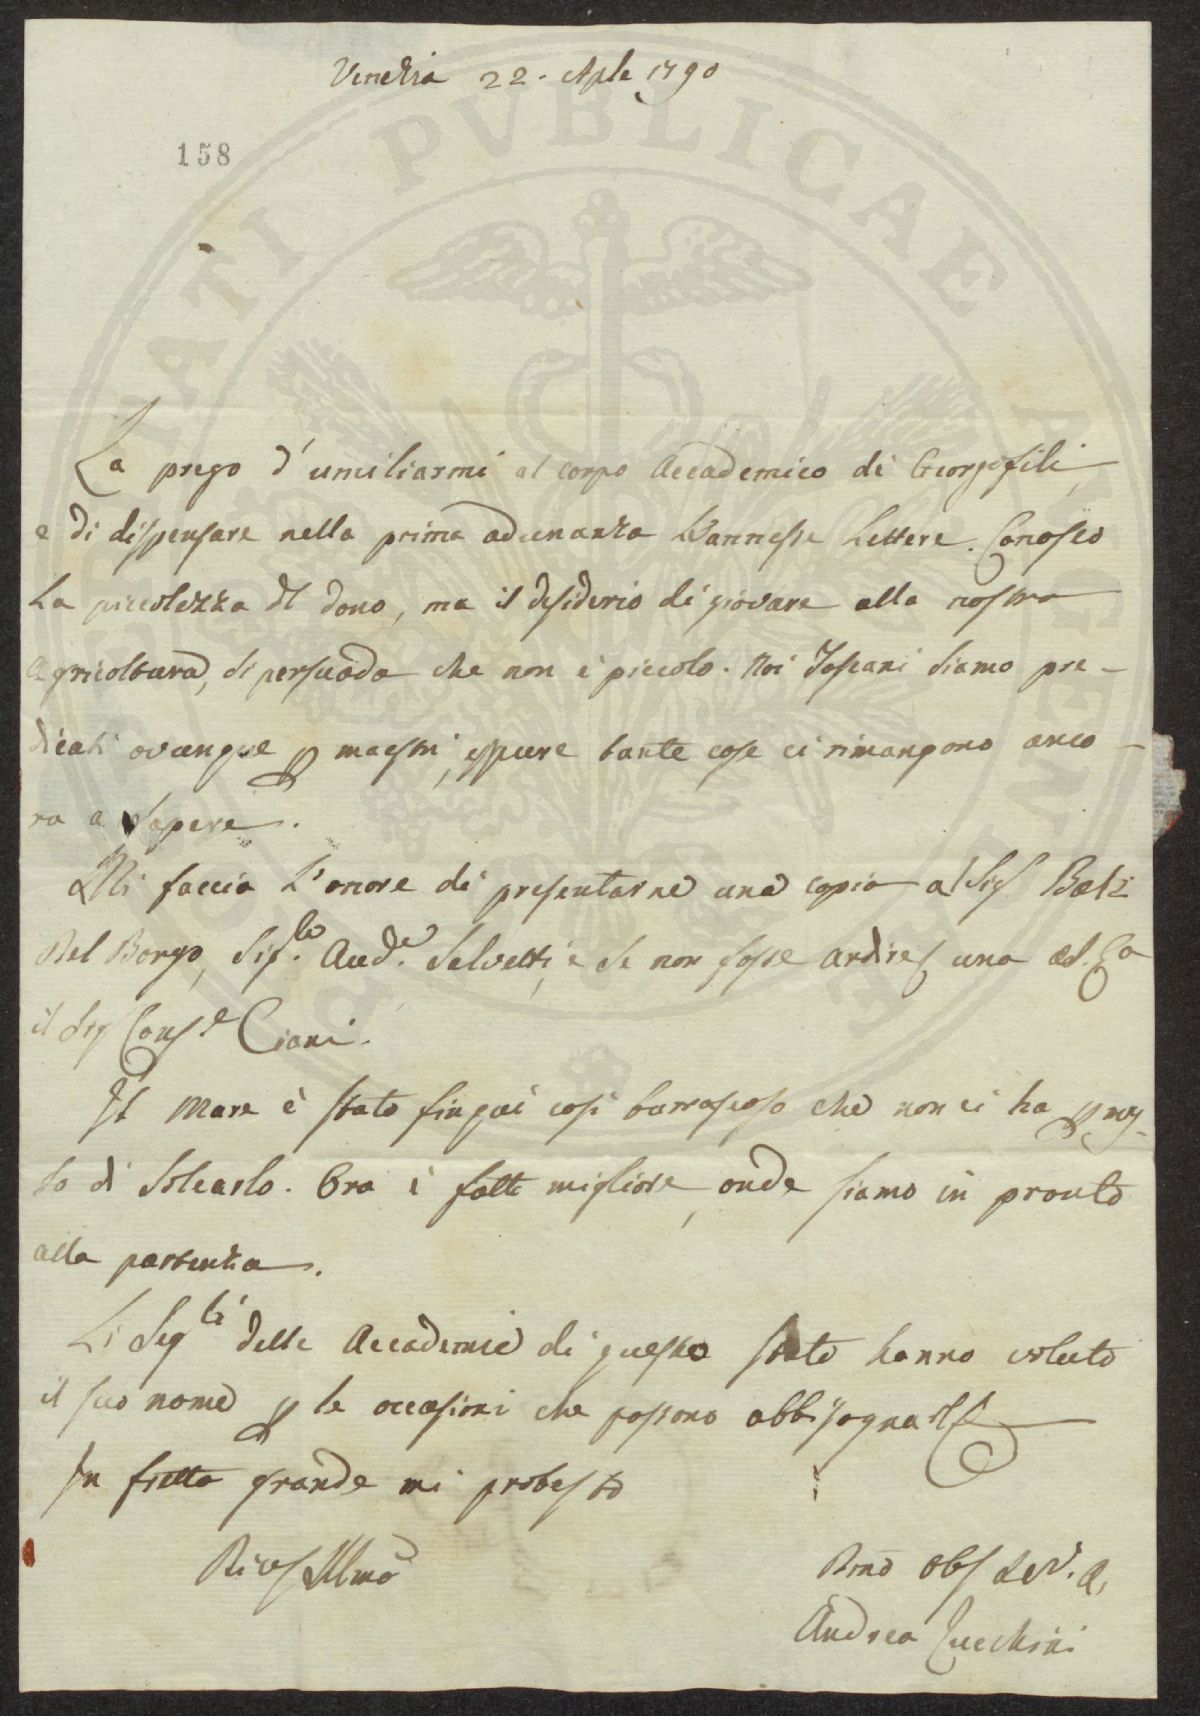 Venezia 22. Aple 1790
158
PUBLICAE
La prego d'umiliarmi al corpo Accademico di Georgofili,
e di dispensare nella prima adunanza L'annesse Lettere. Conosco
La piccolezza del dono, ma il desiderio di giovare alla nostra
Agricoltura, si persuada che non è piccolo. Noi Toscani siamo pre-
dicati ovunque p maestri, eppure tante cose ci rimangono anco-
ra a sapere.
Mi faccia L'onore di presentarne una copia al Sig Balì
Del Borgo, Aud.e Salvetti, e se non fosse ardire, una
il Sig Cons.e Ciani.
Il Mare è stato finqui così burrascoso che non ci ha pmes-
so di Solcarlo. Ora è fatto migliore, onde siamo in pronto
alla partenza.
Li Seg.ti delle Accademie di questo stato hanno voluto
il suo nome p le occasioni che possono abbisognare
In fretta grande mi protesto
Andrea Zucchini